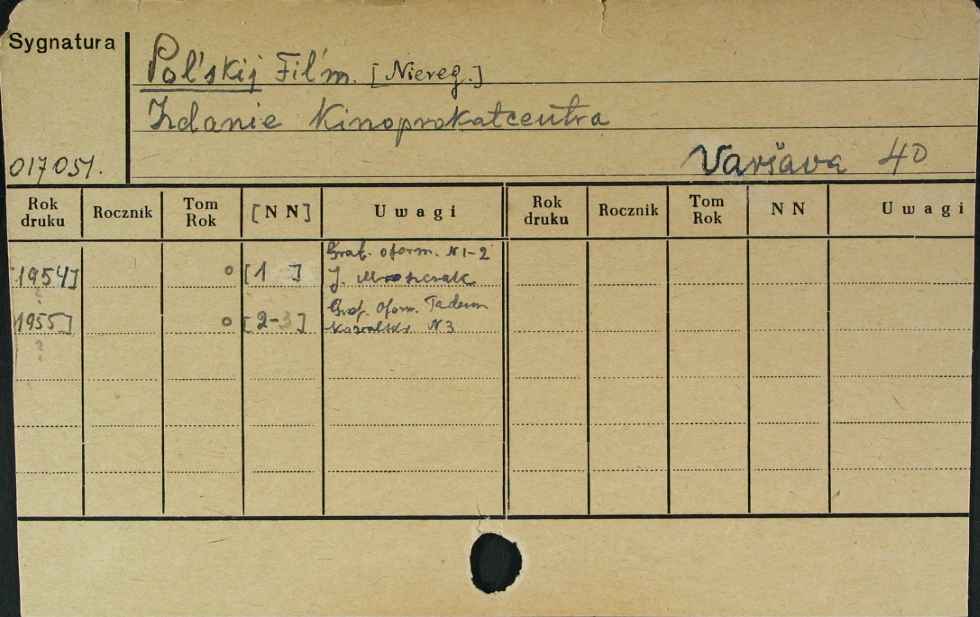 Sygnatura
Pol'skij Fil'm. [Niereg.]
Izdanie Kinoprokatcentra
017051.
Varšava 4D
Rok druku Rocznik Tom Rok [NN] Uwagi Rok druku Rocznik Tom Rok NN Uwagi
Graf. oform. N 1-2
[1954] o [1 ] J.
?
Graf. Oform. Tadeusz
[1955] o [2-3] N 3
?